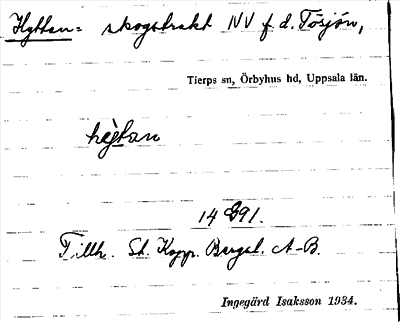 Hyttan: skogstrakt NV f. d. Tösjön,
Tierps sn, Örbyhus hd, Uppsala län.
hỳtan
14 G91.
Tillh. St. Kopp. Bergsl. A-B.
Ingegärd Isaksson 1934.